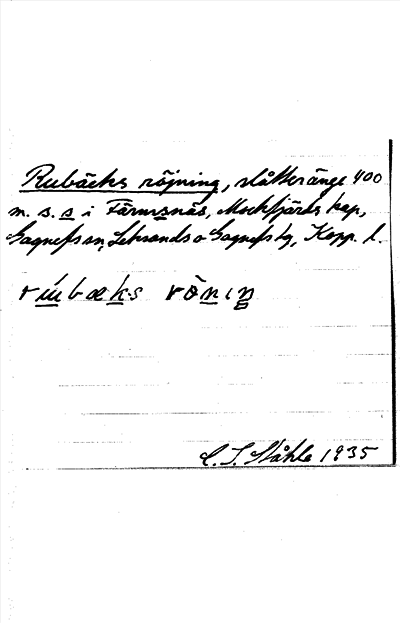 Rubäcks röjning, slåtteränge 400
m. s. s i Färmsnäs, Mockfjärds kap,
Gagnefs sn, Leksands o Gagnefs tg, Kopp. l.
C. I. Ståhle 1935